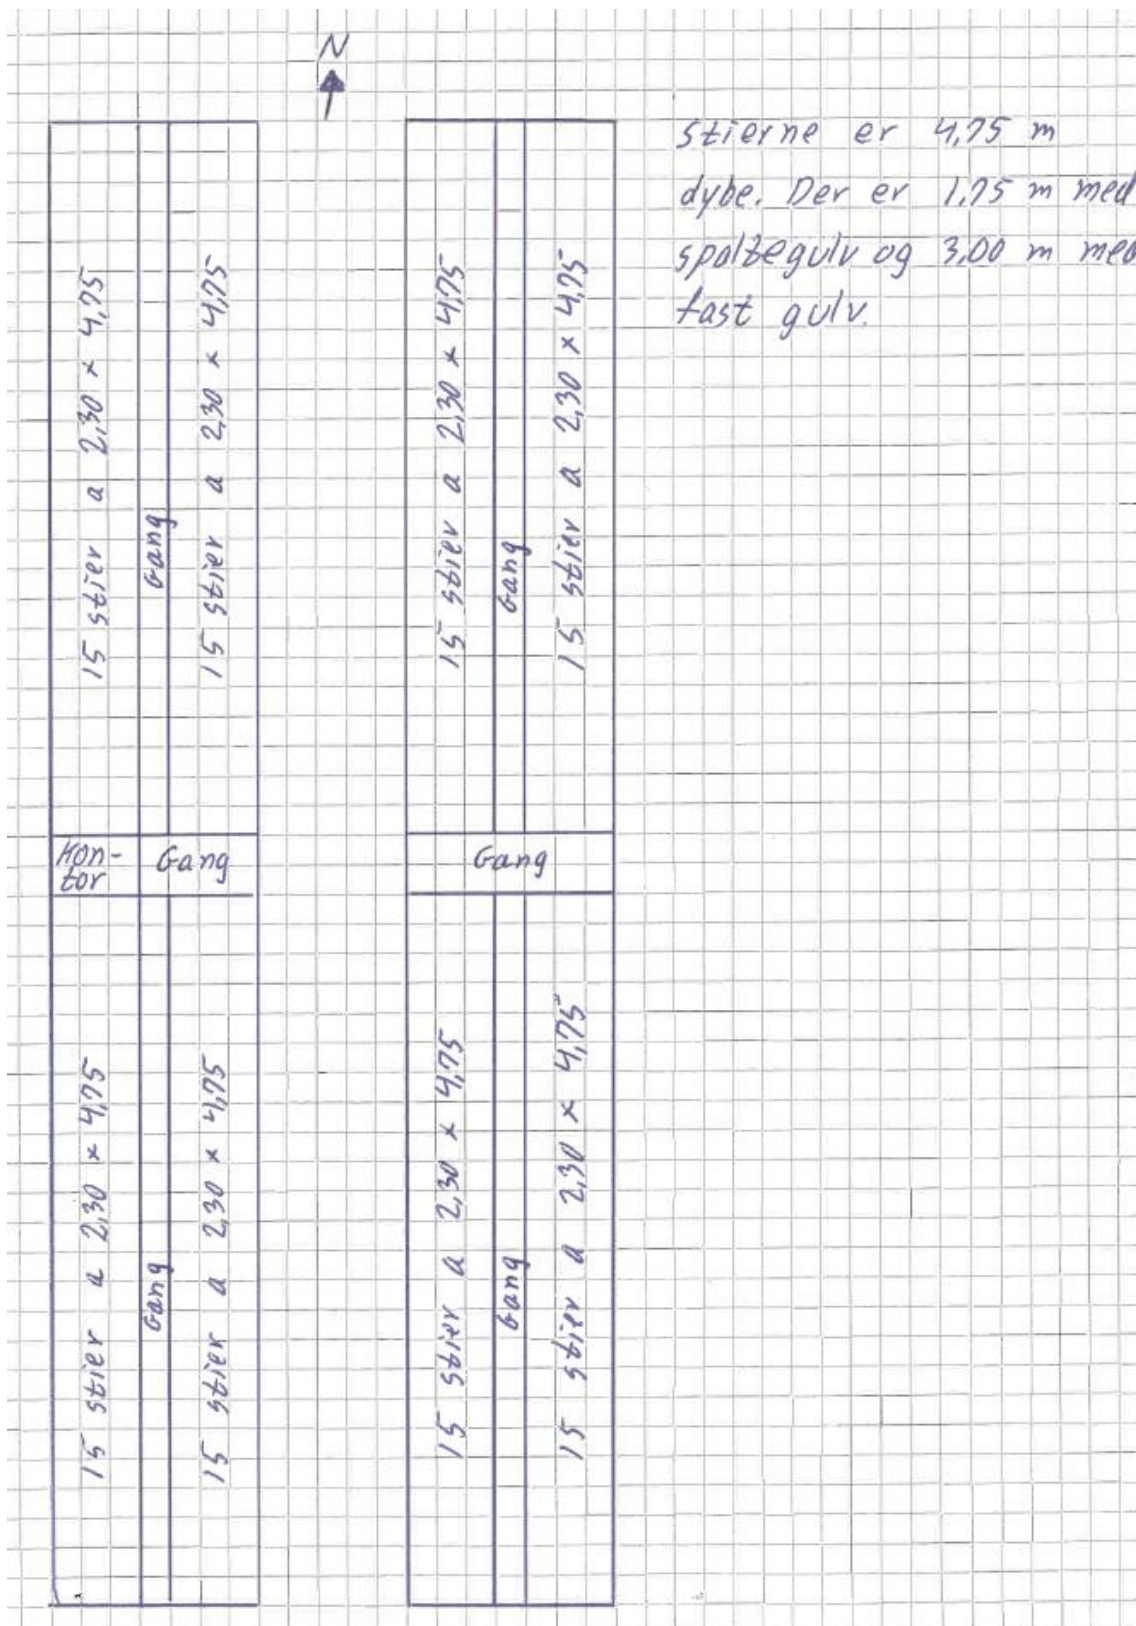 N
stierne er 4,75 m
dybe. Der er 1,75 m med
spaltegulv og 3,00 m med
fast gulv.
15 stier a 2,30 x 4,75
Gang
15 stier a 2,30 x 4,75
15 stier a 2,30 x 4,75
Gang
15 stier a 2,30 x 4,75
Kon-
tor
Gang
Gang
15 stier a 2,30 x 4,75
Gang
15 stier a 2,30 x 4,75
15 stier a 2,30 x 4,75
Gang
15 stier a 2,30 x 4,75